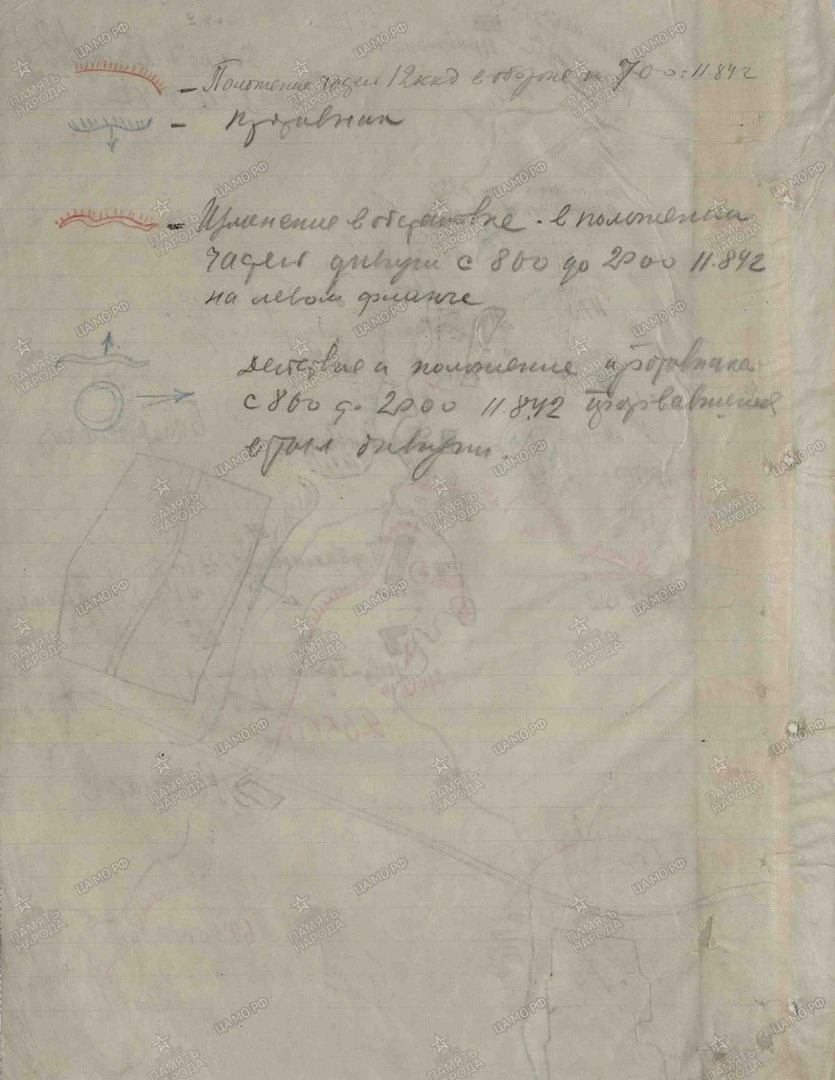 – Положение частей 12 ккд в обороне к 7 00 11.8 42
– Противник
– Изменение в обстановке. в положении
частей дивизии с 8 00 до 20 00 11.8 42
на левом фланге
Действие и положение противника
с 8 00 до 20 00 11.8 42 прорвавшегося
в тыл дивизии.
ПАМЯТЬ НАРОДА
ЦАМО.РФ